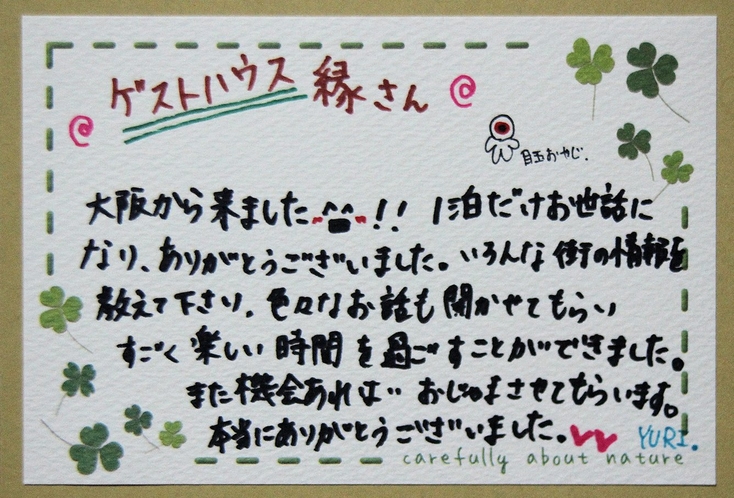 @ ゲストハウス 縁さん @
目玉おやじ.
大阪から来ました!! 1泊だけお世話に
なり、ありがとうございました。いろんな街の情報を
教えて下さり、色々なお話も聞かせてもらい
すごく楽しい時間を過ごすことができました。
また機会あればおじゃまさせてもらいます。
本当にありがとうございました。 YURI.
carefully about nature